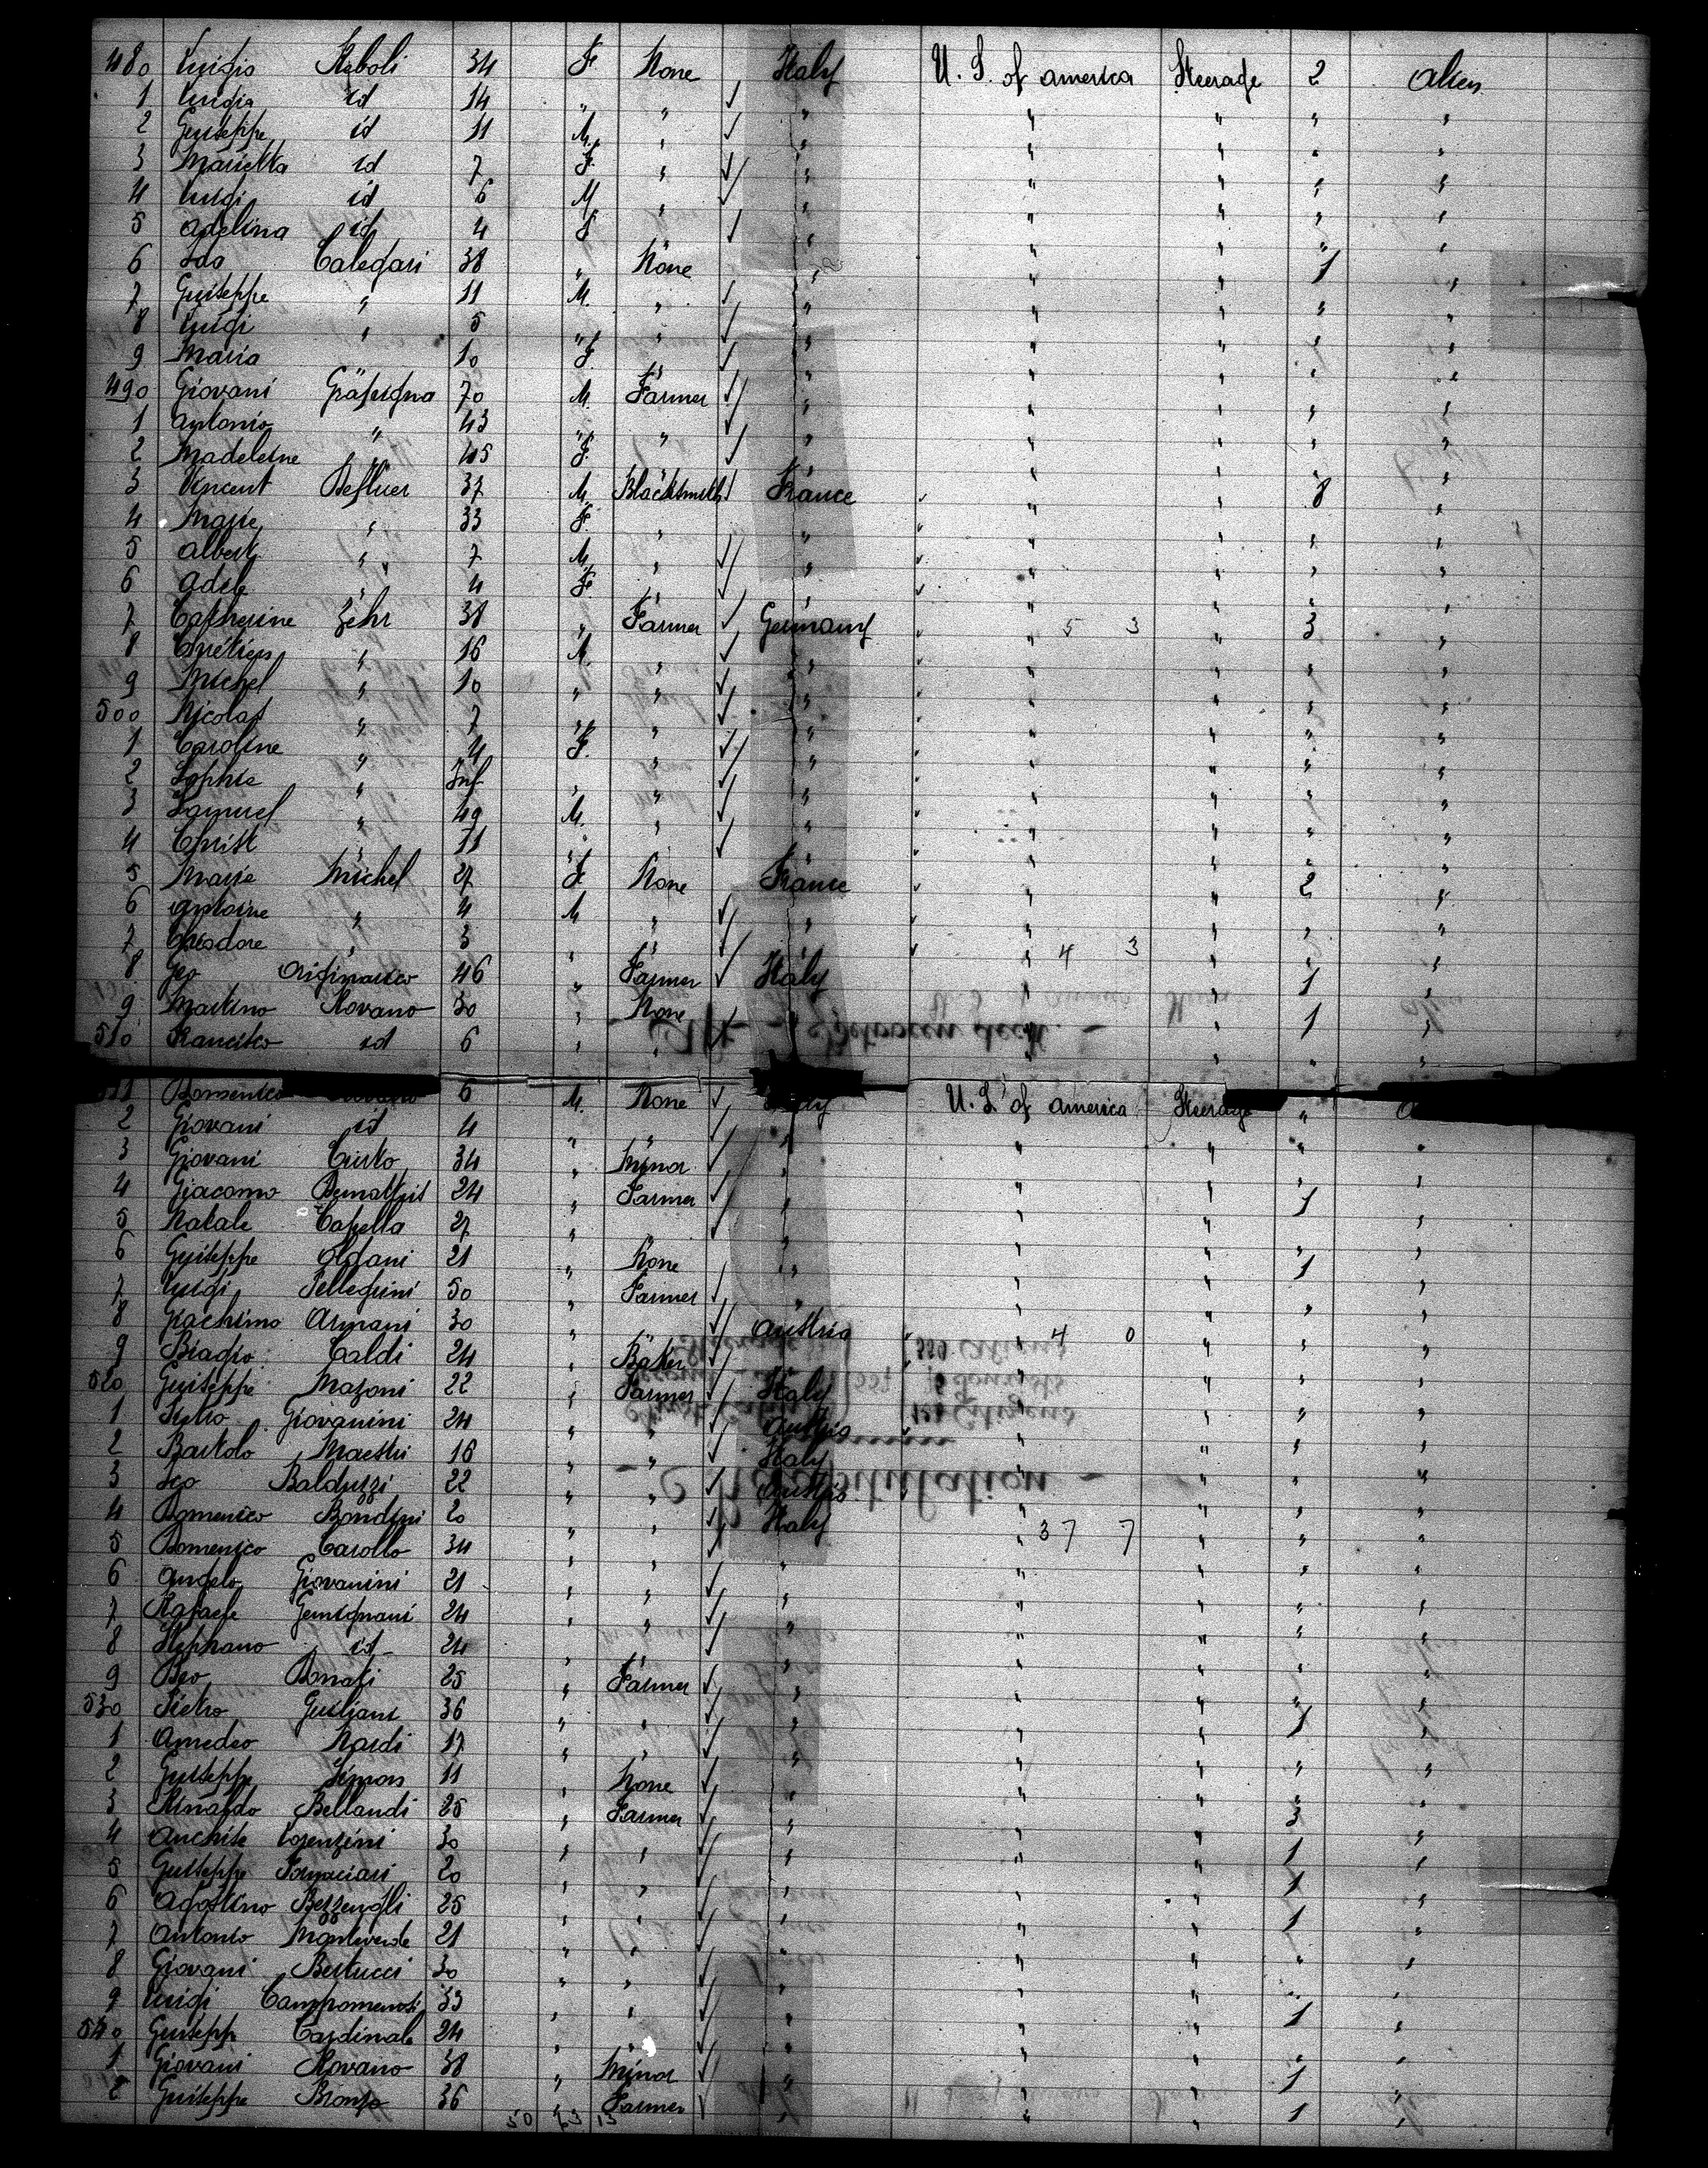 480 Luigia Raboli 34 F None Italy U. S. of america Steerage 2 alien
1 Luigia id 14 " " ✓ " " " " "
2 Guiseppe id 11 M. " ✓ " " " " "
3 Marietta id 7 F. " ✓ " " " " "
4 Luigi id 6 M " " " " " "
5 adelina id 4 F ✓ " " " " "
6 Calegari 38 " None " " " 1 "
7 Guiseppe " 11 M. " ✓ " " " " "
8 Luigi " 5 " " ✓ " " " " "
9 Maria 10 F. ✓ " " " " "
490 Giovani 70 M. Farmer ✓ " " " " "
1 antonio " 43 " " ✓ " " " " "
2 Madeleine " 45 F. ✓ " " " "
3 Vincent 37 M. Blacksmith ✓ France " " 8 "
4 Marie " 33 F. " " " " " "
5 albert " 7 M. " ✓ " " " " "
6 adele " 4 F. ✓ " " " " "
7 Catherine Zehr 38 " Farmer ✓ Germany " 5 3 " 3 "
8 " 16 M. " ✓ " " " "
9 Michel " 10 " " ✓ " " " " "
500 Nicolas " 7 " " ✓ " " " " "
1 Caroline " 4 F. " ✓ " " " " "
2 Sophie " Inf " " ✓ " " " " "
3 Samuel " 49 M. " ✓ " " " " "
4 Christ " 11 " ✓ " " " "
5 Marie Michel 27 F None France " " 2 "
6 antoine " 4 M " ✓ " " " " "
7 " 3 ✓ " 4 3 " "
8 Geo Originario 46 " Farmer ✓ Italy " " 1 "
9 Martino Rovano 30 " None " " 1 "
510 Francisco id 6 " " " "
Domenico 6 M. None ✓ U. S. of america Steerage "
2 Giovani id 4 " " ✓ " " " " "
3 Giovani 34 " Minor ✓ " " " " "
4 Giacomo 24 " Farmer ✓ " " " 1 "
5 Natale Capella 27 " ✓ " " " "
6 Guiseppe Oldani 21 " None " " " 1 "
7 Luigi Pellegrini 50 " Farmer ✓ " " " "
8 Giachimo Armani 30 " ✓ austria 4 0 " " "
9 Biagio Caldi 24 " Baker ✓ " " "
520 Guiseppe Mazoni 22 " Farmer ✓ Italy " " " "
1 Pietro Giovanini 24 " " ✓ austria " " " "
2 Bartolo Maestri 16 " " ✓ Italy " " " "
3 Leo Balduzzi 22 " " ✓ austria " " " "
4 Domenico Bondini 20 " " ✓ Italy 37 7 " " "
5 Domenico Carollo 34 " " ✓ " " " " "
6 angelo Giovanini 21 " " ✓ " " " " "
7 Rafaele Gemignani 24 " " ✓ " " " " "
8 Stephano id 24 " ✓ " " " " "
9 25 " Farmer ✓ " " " " "
530 Pietro Guiliani 36 " " ✓ " " " 1 "
1 Amedeo Nardi 17 " " ✓ " " " " "
2 Guiseppe Simon 11 " None ✓ " " " " "
3 Rinaldo Bellandi 25 " Farmer ✓ " " " 3 "
4 anchise Lorenzini 30 " " ✓ " " " 1 "
5 Guiseppe Fornaciari 20 " " ✓ " " " 1 "
6 Agostino 25 " " ✓ " " " 1 "
7 Antonio Monteverde 21 " " ✓ " " " " "
8 Giovani Bertucci 30 " " ✓ " " " " "
9 Luigi Campomenosi 33 " " ✓ " " " 1 "
540 Guisepp Cardinale 24 " ✓ " " " "
1 Giovani Rovano 38 " Minor ✓ " " " 1 "
2 Guiseppe 36 " Farmer ✓ " " 1 "
50 13